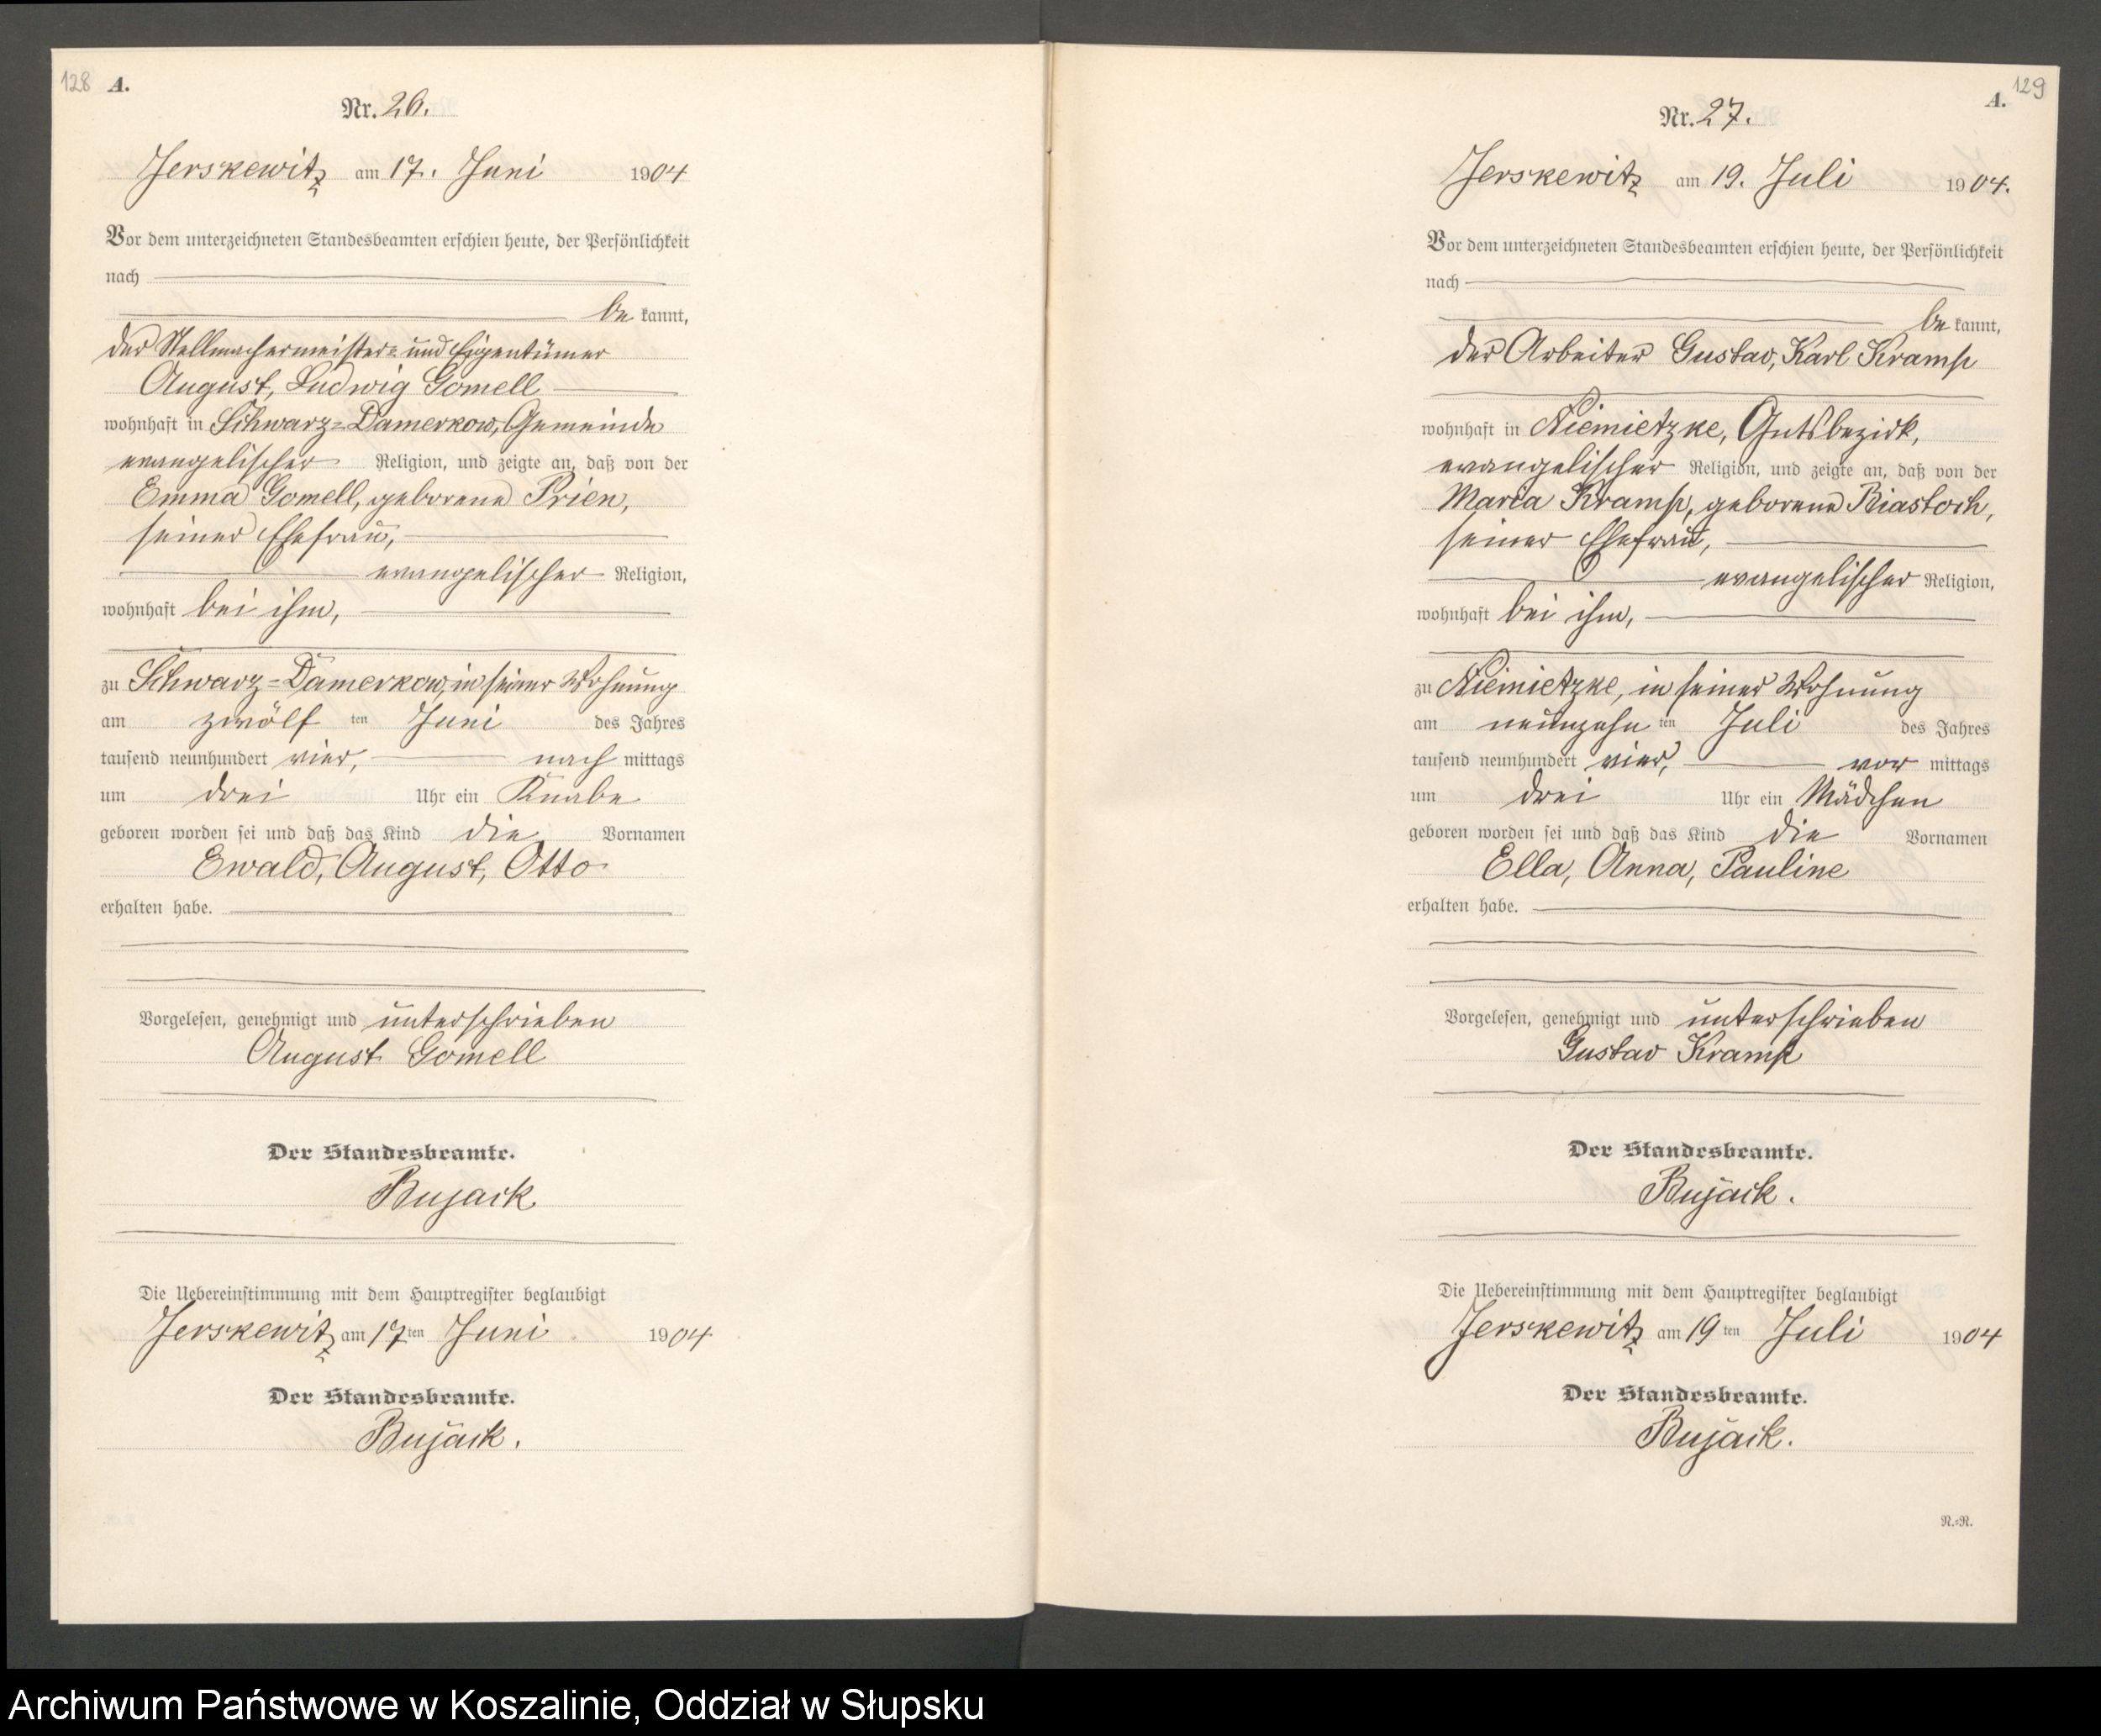 128 A.
Nr. 26.
Jerskewitz am 17. Juni 1904
Vor dem unterzeichneten Standesbeamten erschien heute, der Persönlichkeit
nach
be kannt,
der Stellmachermeister und Eigentümer
August, Ludwig Gomell
wohnhaft in Schwarz-Damerkow, Gemeinde
evangelischer Religion, und zeigte an, daß von der
Emma Gomell, geborene Prien,
seiner Ehefrau,
evangelischer Religion,
wohnhaft bei ihm,
zu Schwarz-Damerkow, in seiner Wohnung
am zwölf ten Juni des Jahres
tausend neunhundert vier, nach mittags
um drei Uhr ein Knabe
geboren worden sei und daß das Kind die Vornamen
Ewald, August, Otto
erhalten habe.
Vorgelesen, genehmigt und unterschrieben
August Gomell
Der Standesbeamte.
Bujack
Die Uebereinstimmung mit dem Hauptregister beglaubigt
Jerskewitz am 17ten Juni 1904
Der Standesbeamte.
Bujack.
A. 129
Nr. 27.
Jerskewitz am 19. Juli 1904.
Vor dem unterzeichneten Standesbeamten erschien heute, der Persönlichkeit
nach
be kannt,
der Arbeiter Gustav, Karl Kramp
wohnhaft in Niemietzke, Gutsbezirk,
evangelischer Religion, und zeigte an, daß von der
Maria Kramp, geborene Biastoch,
seiner Ehefrau,
evangelischer Religion,
wohnhaft bei ihm,
zu Niemietzke, in seiner Wohnung
am neunzehn ten Juli des Jahres
tausend neunhundert vier, vor mittags
um drei Uhr ein Mädchen
geboren worden sei und daß das Kind die Vornamen
Ella, Anna, Pauline
erhalten habe.
Vorgelesen, genehmigt und unterschrieben
Gustav Kramp
Der Standesbeamte.
Bujack.
Die Uebereinstimmung mit dem Hauptregister beglaubigt
Jerskewitz am 19 ten Juli 1904
Der Standesbeamte.
Bujack.
N.=N.
Archiwum Państwowe w Koszalinie, Oddział w Słupsku